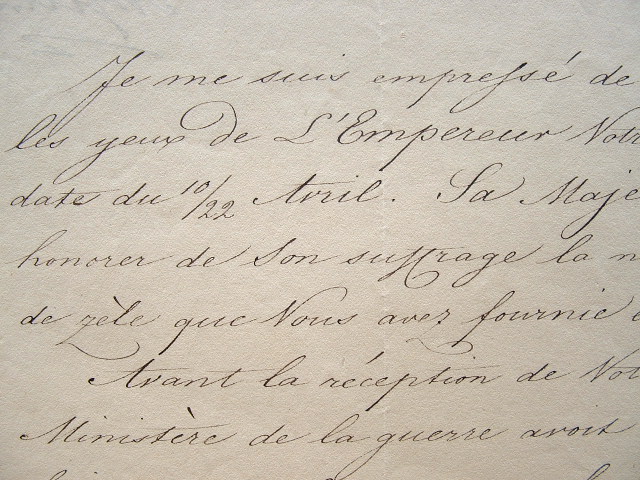 Je me suis empressé de
les yeux de L'Empereur Votr
date du 10/22 Avril. Sa Maje
honorer de Son suffrage la n
de zèle que Vous avez fournie
Avant la réception de Vot
Ministère de la guerre avoit